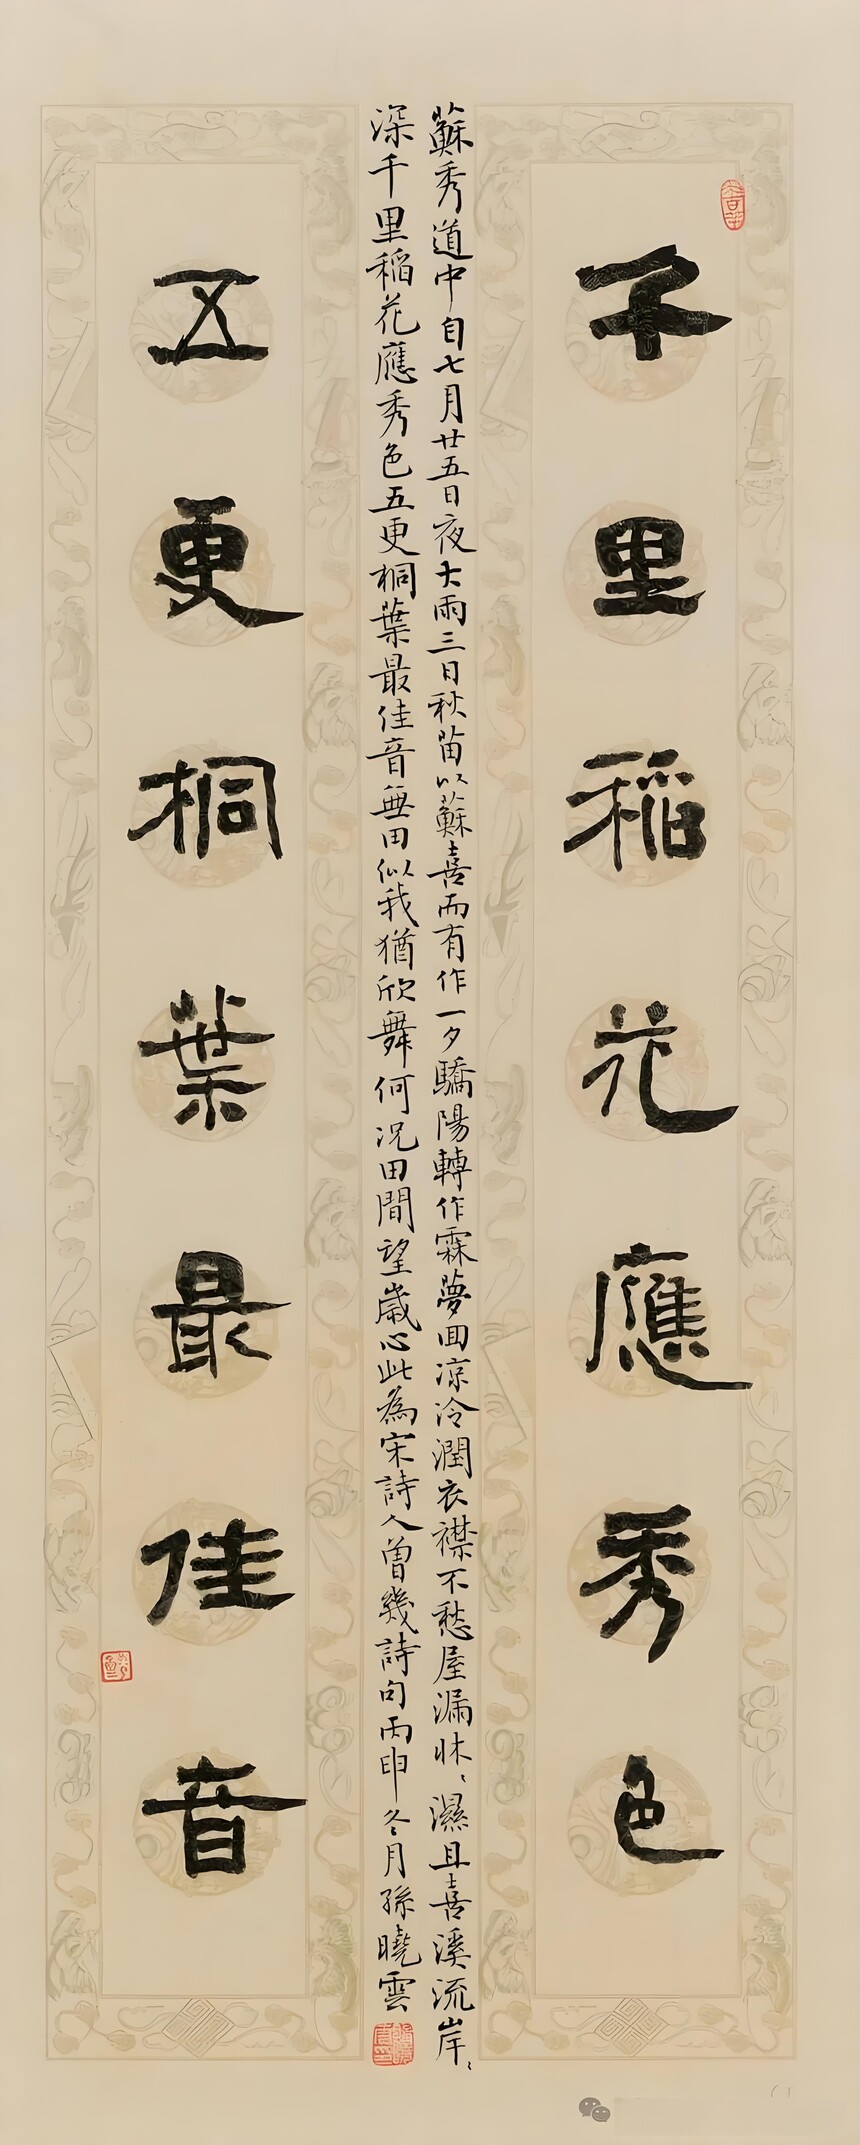 千里稻花應秀色
蘇秀道中自七月廿五日夜大雨三日秋苗以蘇喜而有作一夕驕陽轉作霖夢回凉冷潤衣襟不愁屋漏牀〻濕且喜溪流岸〻
深千里稻花應秀色五更桐葉最佳音無田似我猶欣舞何况田間望歲心此為宋詩人曾幾詩句丙申冬月孫曉雲
五更桐葉最佳音